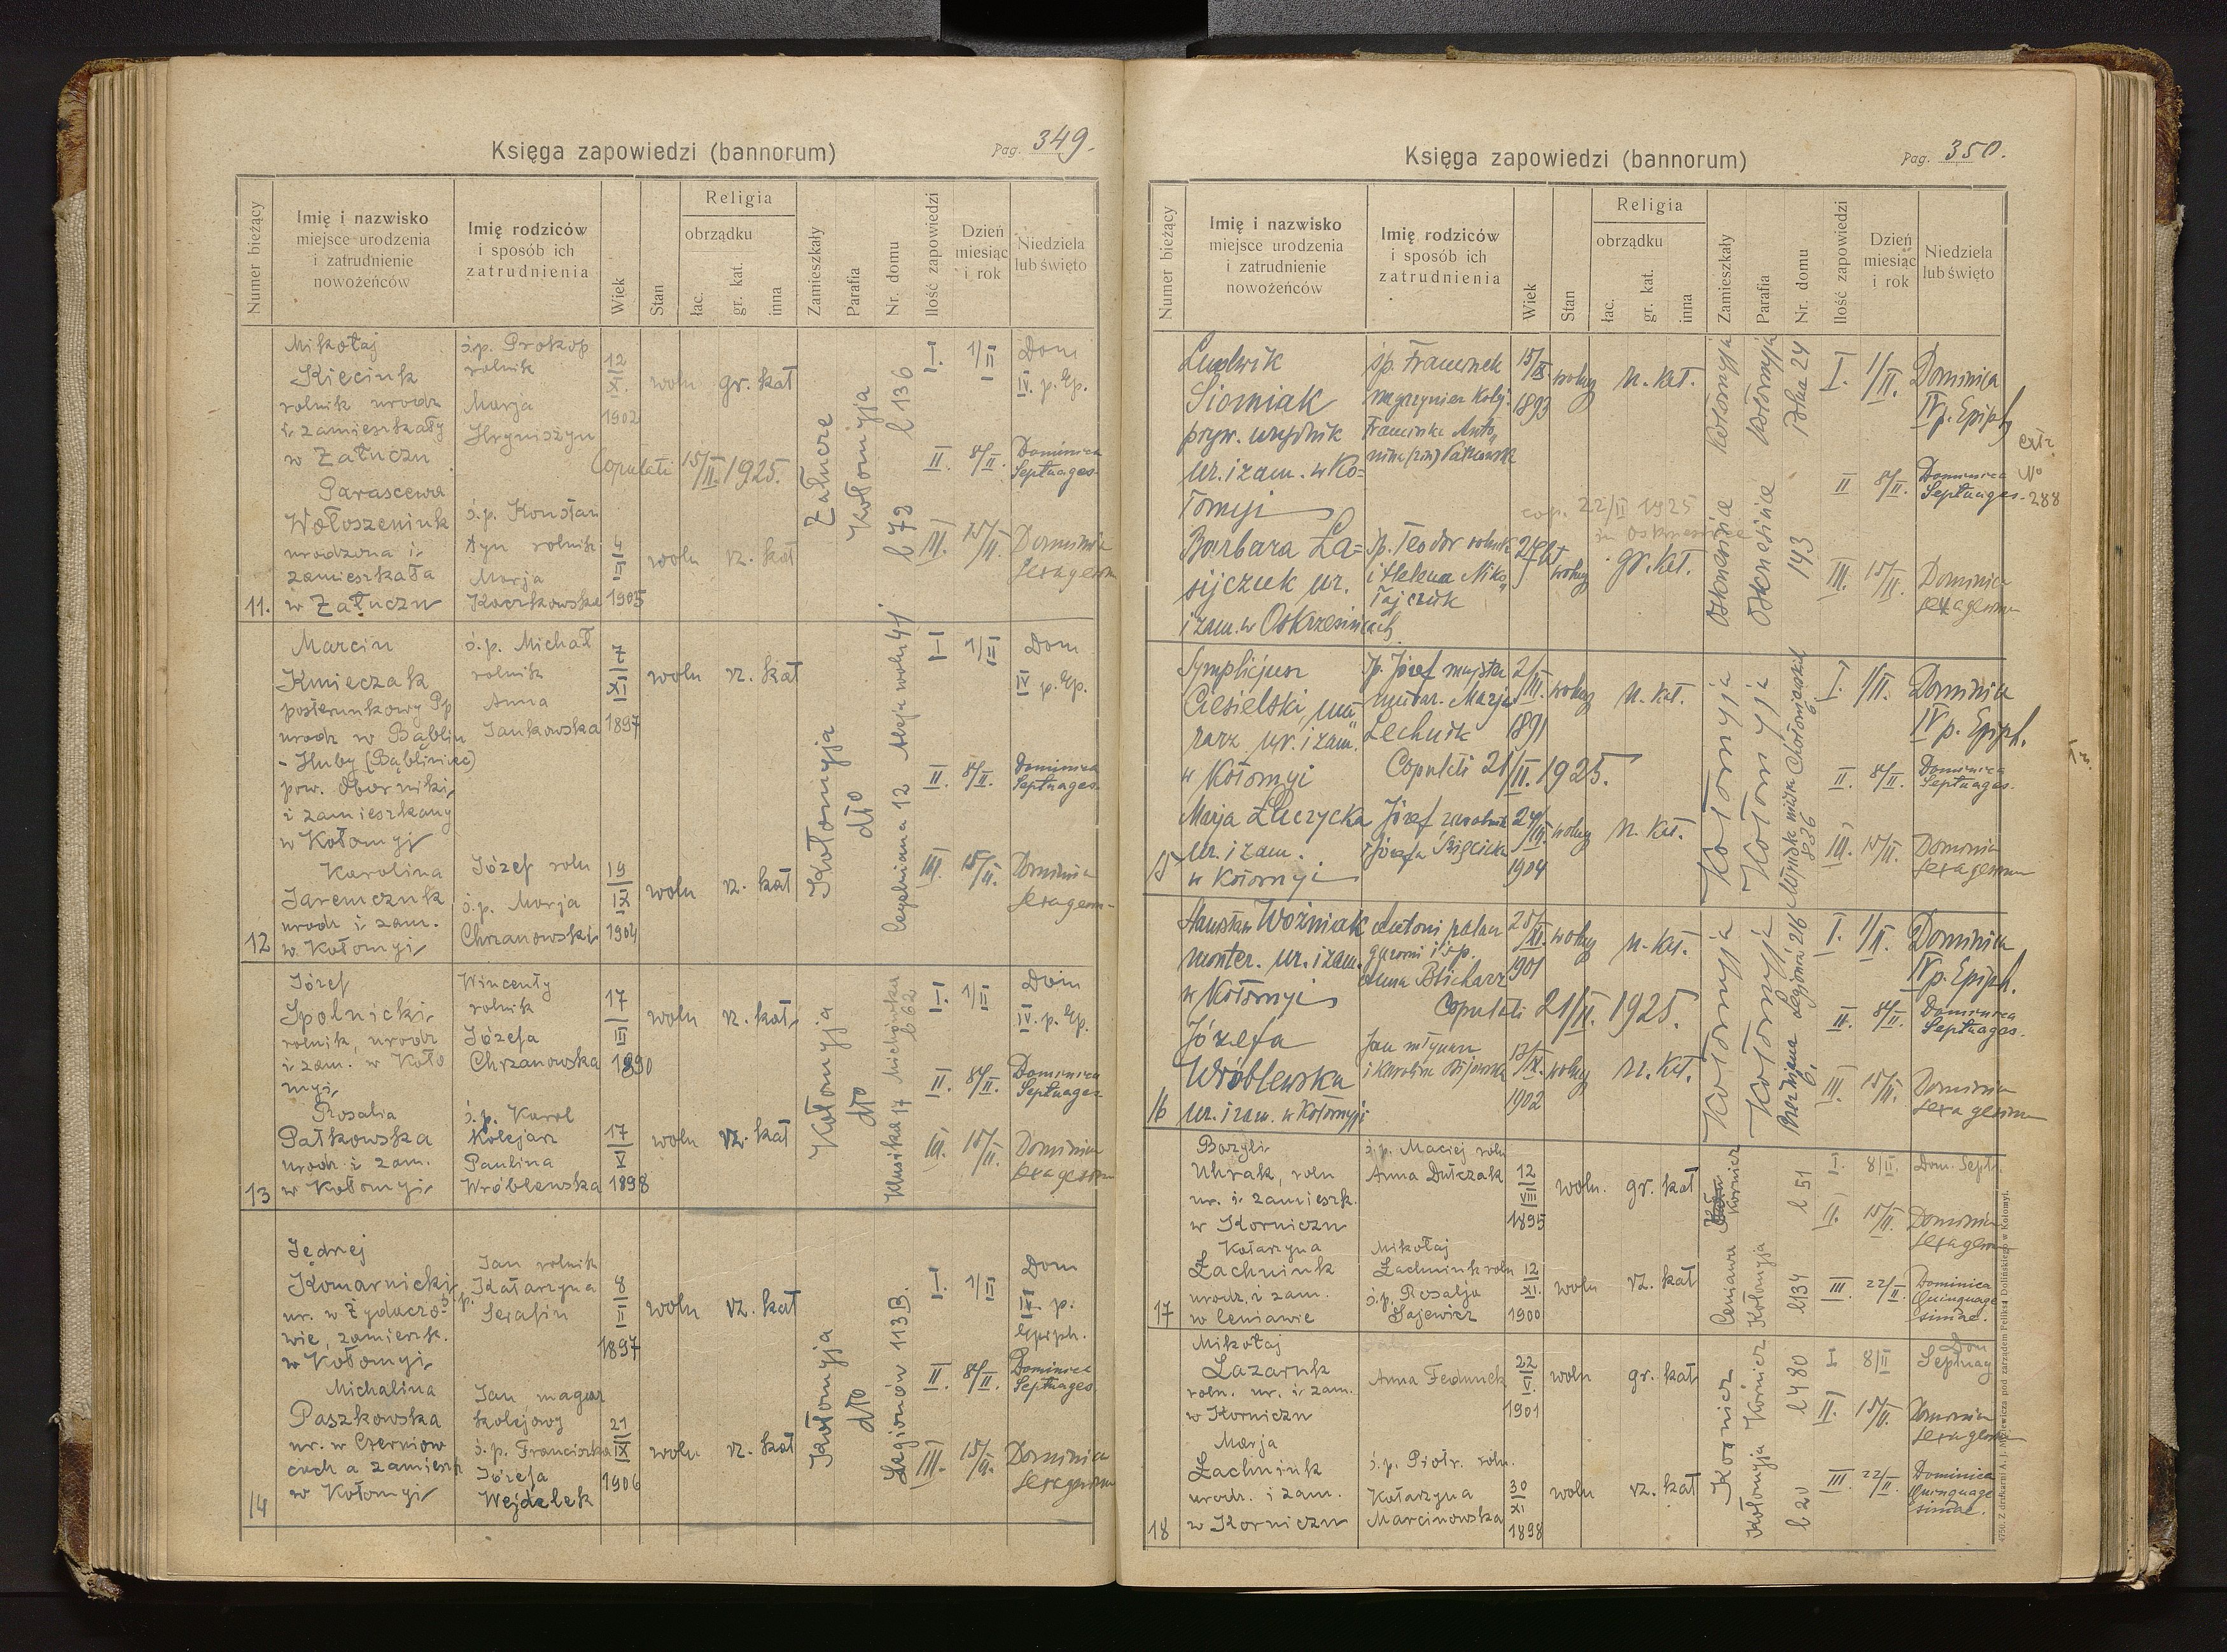 Księga zapowiedzi (bannorum)
Pag. 349.
Numer bieżący
Imię i nazwisko
miejsce urodzenia
i zatrudnienie
nowożeńców
Imię rodziców
i sposób ich
zatrudnienia
Wiek
Stan
Religia
obrządku
łac.
gr. kat.
inna
Zamieszkały
Parafia
Nr. domu
Ilość zapowiedzi
Dzień
miesiąc
i rok
Niedziela
lub święto
11.
Mikołaj
Kieciuk
rolnik urodz
i zamieszkały
w Załuczu
ś.p. Prokop
rolnik
Marja
Hryniszyn
12
XI
1902
woln
gr. kat
Copulati 15/II 1925.
Parascewa
Wołoszeniuk
urodzona i
zamieszkała
w Załuczu
ś.p. Konstan
tyn rolnik
Marja
Kaczkowska
4
II
1905
woln
rz. kat
Załucze
Kołomyja
l 136
l 72
I
1/II
Dom
IV. p. Ep.
II.
8/II.
Dominica
Septuages.
III.
15/II.
Dominica
sexagesim
12
Marcin
Kmieczak
posterunkowy Pp
urodz w Bąblin
- Huby (Bąbliniec)
pow. Oborniki,
i zamieszkany
w Kołomyji
ś.p. Michał
rolnik
Anna
Jankowska
7
XI
1897
woln
rz. kat
Karolina
Jaremczuk
urodz i zam.
w Kołomyji
Józef roln
ś.p. Marja
Chrzanowski
19
IX
1904
woln
rz. kat
Kołomyja
dto
Aleja woln 41
Cegielniana 12
I
1/II
Dom
IV p. Ep.
II.
8/II.
Dominica
Septuages.
III.
15/II.
Dominica
sexagesim-
13
Józef
Spolnicki
rolnik, urodz
i zam. w Koło
myji
Wincenty
rolnik
Józefa
Chrzanowska
17
III
1890
woln
rz. kat
Rosalia
Patkowska
urodz i zam.
w Kołomyji
ś.p. Karol
kolejarz
Paulina
Wróblewska
17
VI
1898
woln
rz. kat
Kołomyja
dto
l 62
I.
1/II
Dom
IV. p. Ep.
II.
8/II.
Dominica
Septuages.
III.
15/II.
Dominica
sexagesim
14
Jędrzej
Komarnicki
ur. w Żydaczo
wie, zamieszk.
w Kołomyji
Jan rolnik
ś.p. Katarzyna
Serafin
8
II
1897
woln
rz. kat
Michalina
Paszkowska
ur. w Czerniow
cach a zamieszk
w Kołomyji
Jan magaz
kolejowy
ś.p. Franciszka
Józefa
Wejdelek
21
XI
1906
woln
rz. kat
Kołomyja
dto
Legionów 113 B.
I.
1/II
Dom
IV p.
Epiph.
II.
8/II.
Dominica
Septuages.
III.
15/II.
Dominica
sexagesim
Księga zapowiedzi (bannorum)
Pag. 350.
Numer bieżący
Imię i nazwisko
miejsce urodzenia
i zatrudnienie
nowożeńców
Imię rodziców
i sposób ich
zatrudnienia
Wiek
Stan
Religia
obrządku
łac.
gr. kat.
inna
Zamieszkały
Parafia
Nr. domu
Ilość zapowiedzi
Dzień
miesiąc
i rok
Niedziela
lub święto
Ludwik
Siomiak
pryw. urzędnik
ur. i zam. w Ko=
łomyji
śp. Franciszek
magazynier kolej.
Franciszka Anto,,
nina Patkowska
15/IX
1893
wolny
rz. kat.
cop. 22/II 1925
w Oskrzesińce
Barbara Ła=
sijczuk ur.
i zam. w Oskrzesińcach
śp. Teodor rolnik
i Helena Miko,,
łajczuk
24 lat
wolny
gr. kat.
Kołomyja
Kołomyja
Polna 24
143
I.
1/II.
Dominica
IV p. Epiph
extr.
No
288
II
8/II.
Dominica
Septuages.
III.
15/II.
Dominica
sexagesim
15
Symplicjusz
Ciesielski, mu,,
rarz ur. i zam.
w Kołomyji
śp. Józef majster
murar. Marja
Lechnik
2/III.
1891
wolny
rz. kat.
Copulati 21/II. 1925.
Marja Łączycka
ur. i zam.
w Kołomyji
Józef
i Józefa
24/III
1904
wolny
rz. kat.
Kołomyja
Kołomyja
836
I.
1/II.
Dominica
IV p. Epiph.
II.
8/II.
Dominica
Septuages.
III.
15/II.
Dominica
sexagesim
16
Stanisław Woźniak
monter. ur. i zam.
w Kołomyji
Antoni palacz
gazowni i śp.
Anna Blicharz
25/XI.
1901
wolny
rz. kat.
Copulati 21/II. 1925.
Józefa
Wróblewska
ur. i zam. w Kołomyji
Jan młynarz
i Karolina
13/IX.
1902
wolny
rz. kat.
Kołomyja
Kołomyja
Legjonów 216
6.
I.
1/II.
Dominica
IV p. Epiph.
II.
8/II.
Dominica
Septuages.
III.
15/II.
Dominica
sexagesim
17
Bazyli
Uhrak, roln
ur. i zamieszk.
w Korniczu
ś.p. Maciej roln
Anna Dutczak
12
VIII
1895
woln.
gr. kat
Katarzyna
Łachniuk
urodz. i zam.
w Ceniawie
Mikołaj
Łachniuk roln
ś.p. Rosalja
Sajewicz
12
XI.
1900
woln
rz. kat
Kornicz
Ceniawa
Kołomyja
l 51
l 134
I.
8/II.
Dom. Sept.
II.
15/II.
Dominica
sexagesim
III
22/II.
Dominica
Quinquage
simae.
18
Mikołaj
Łazaruk
roln. ur. i zam.
w Korniczu
Anna Fedunek
22
VI
1901
woln
gr. kat
Marja
Łachniuk
urodz. i zam.
w Korniczu
ś.p. Piotr. roln.
Katarzyna
Marcinowska
30
XI
1898
woln
rz. kat
Kornicz
Kornicz
Kołomyja
l 480
l 20
I
8/II
Dom
Septuag
II.
15/II.
Dominica
sexagesim
III
22/II.
Dominica
Quinquage
simae.